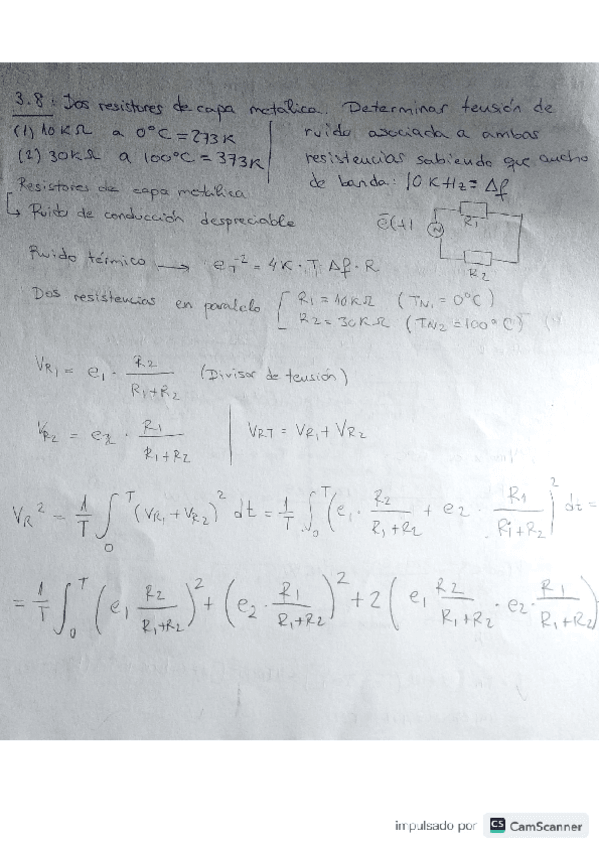 3.8: Dos resistores de capa metálica. Determinar tensión de
(1) 10KΩ a 0°C = 273K ruido asociada a ambas
(2) 30KΩ a 100°C = 373K resistencias sabiendo que ancho
de banda: 10 KHz = Δf
Resistores de capa metálica
↳ Ruido de conducción despreciable
e(t) N R1
R2
Ruido térmico → eT² = 4K·T·Δf·R
Dos resistencias en paralelo [ R1 = 10KΩ (TN1 = 0°C)
R2 = 30KΩ (TN2 = 100°C)
VR1 = e1 · R2/(R1+R2) (Divisor de tensión)
VR2 = e2 · R1/(R1+R2) | VRT = VR1 + VR2
VR² = 1/T ∫₀ᵀ (VR1 + VR2)² dt = 1/T ∫₀ᵀ (e1 · R2/(R1+R2) + e2 · R1/(R1+R2))² dt =
= 1/T ∫₀ᵀ (e1 R2/(R1+R2))² + (e2 · R1/(R1+R2))² + 2 (e1 R2/(R1+R2) · e2 · R1/(R1+R2))
impulsado por CS CamScanner